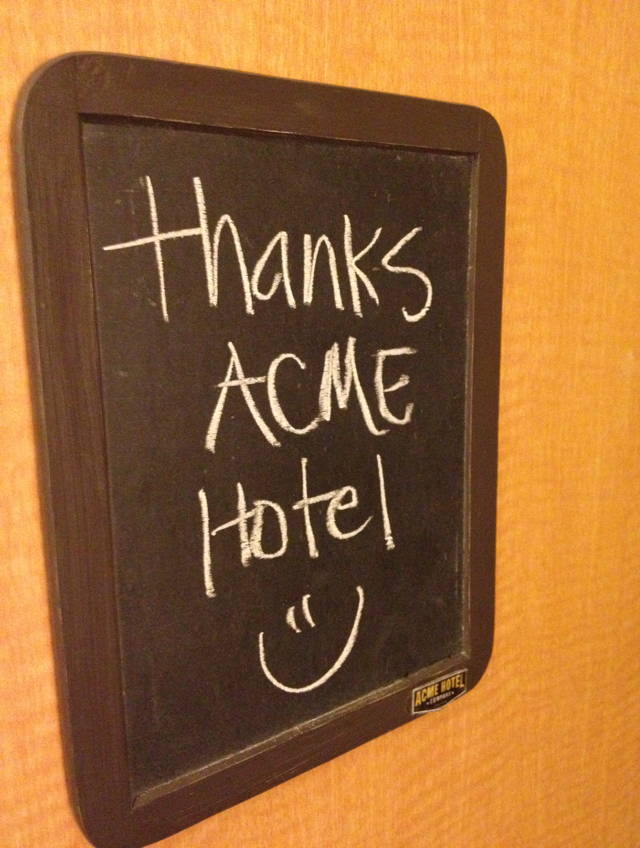 Thanks
ACME
Hotel
ACME HOTEL
COMPANY